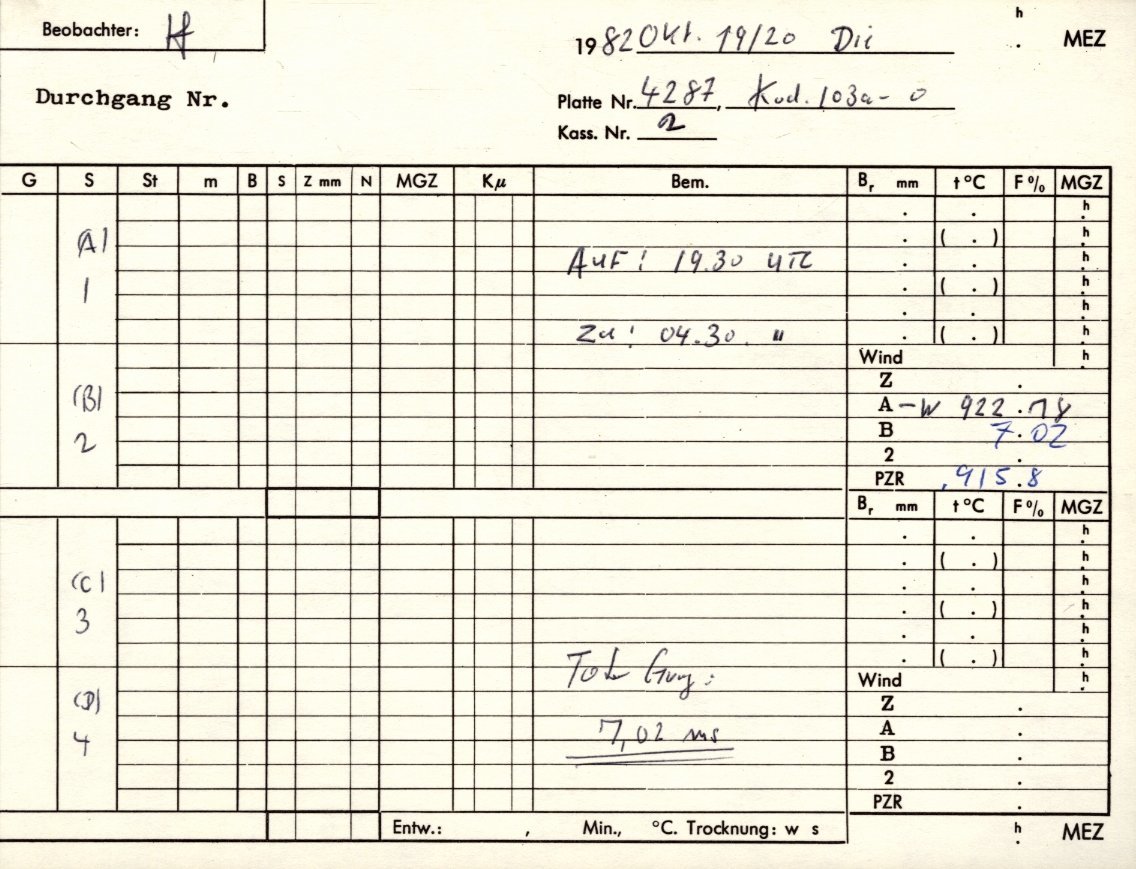 Beobachter: H
h
1982 Okt. 19/20 Die . MEZ
Durchgang Nr.
Platte Nr. 4287, Kod. 103a-0
Kass. Nr. 2
G S St m B S Z mm N MGZ Kμ Bem. Br mm t °C F % MGZ
. . h
(A) . ( . ) h
Auf! 19.30 UTC . . h
1 . ( . ) h
. . h
Zu! 04.30. " . ( . ) h
Wind h
Z .
(B) A -W 922.78
B 7.02
2 2 .
PZR .915.8
Br mm t °C F % MGZ
. . h
. ( . ) h
(C) . . h
3 . ( . ) h
. . h
Tote Gang: . ( . ) h
Wind h
(D) Z .
7,02 ms A .
4 B .
2 .
PZR .
Entw.: , Min., °C. Trocknung: w s h . MEZ